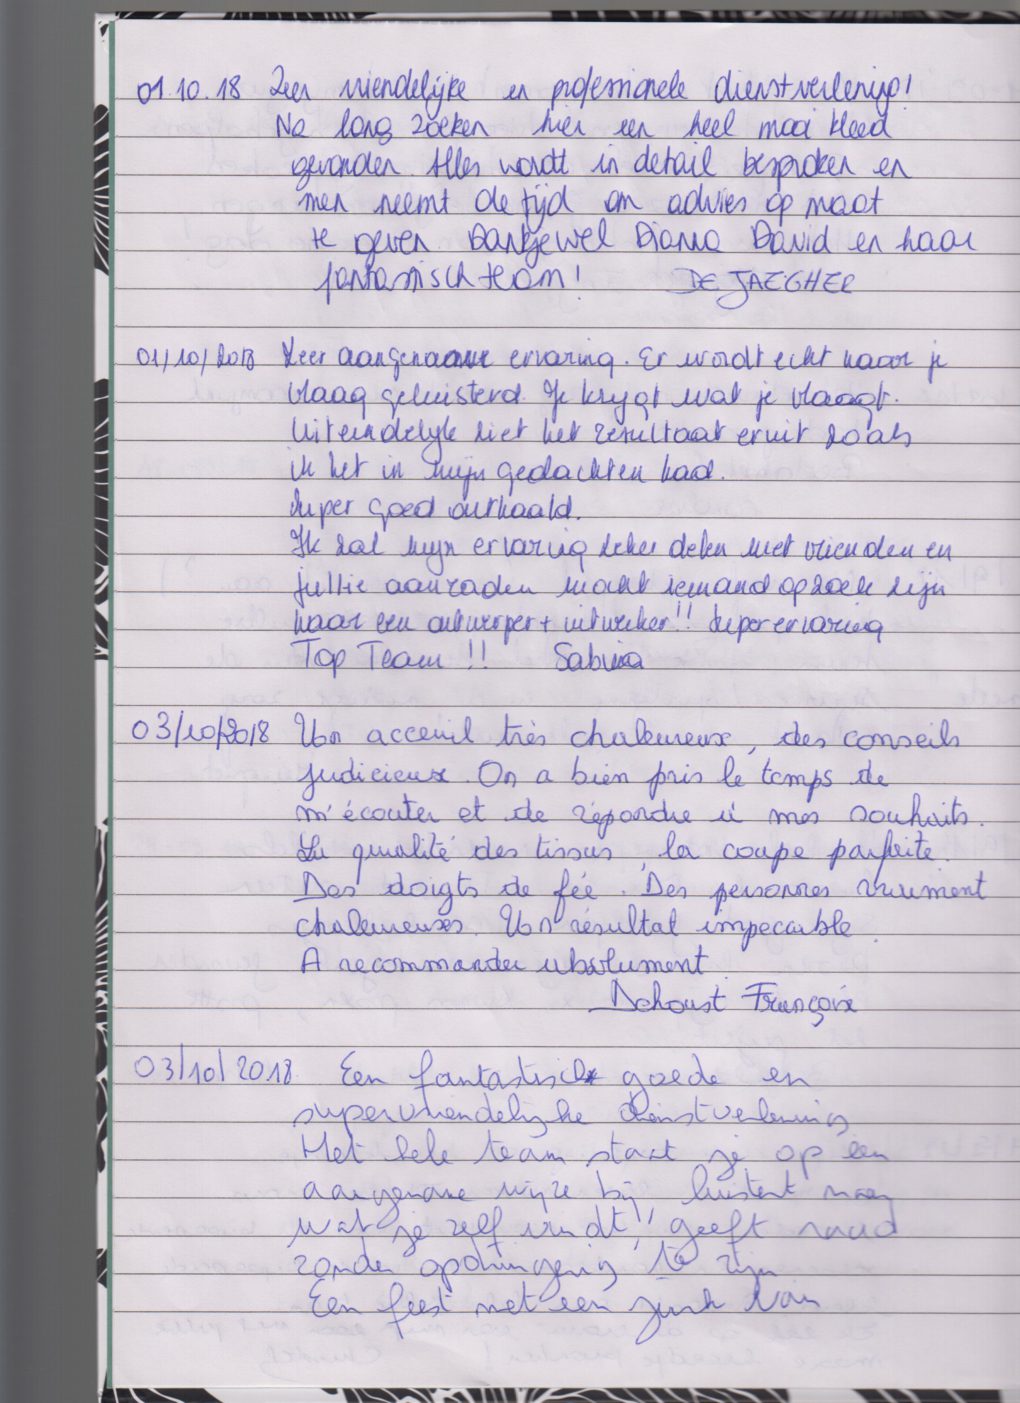 01.10.18 Zeer vriendelijke en professionele dienstverlening!
Na lang zoeken hier een heel mooi kleed
gevonden. Alles wordt in detail besproken en
men neemt de tijd om advies op maat
te geven. Dankjewel Dianna David en haar
fantastisch team! DE JAEGHER
01/10/2018 Zeer aangename ervaring. Er wordt echt naar je
vraag geluisterd. Je krijgt wat je vraagt.
Uiteindelijk ziet het resultaat eruit zoals
ik het in mijn gedachten had.
Super goed onthaald.
Ik zal mijn ervaring zeker delen met vrienden en
jullie aanraden mocht iemand op zoek zijn
naar een ontwerper + uitwerker!! Super ervaring
Top Team !! Sabina
03/10/2018 Un acceuil très chaleureux, des conseils
judicieux. On a bien pris le temps de
m'écouter et de répondre à mes souhaits.
La qualité des tissus, la coupe parfaite.
Des doigts de fée. Des personnes vraiment
chaleureuses. Un résultat impecable.
A recommander absolument.
Dehoust Françoise
03/10/2018 Een fantastisch goede en
supervriendelijke dienstverlening
Het hele team staat je op een
aangename wijze bij, luistert naar
wat je zelf vindt, geeft raad
zonder opdringerig te zijn
Een feest met een jurk van